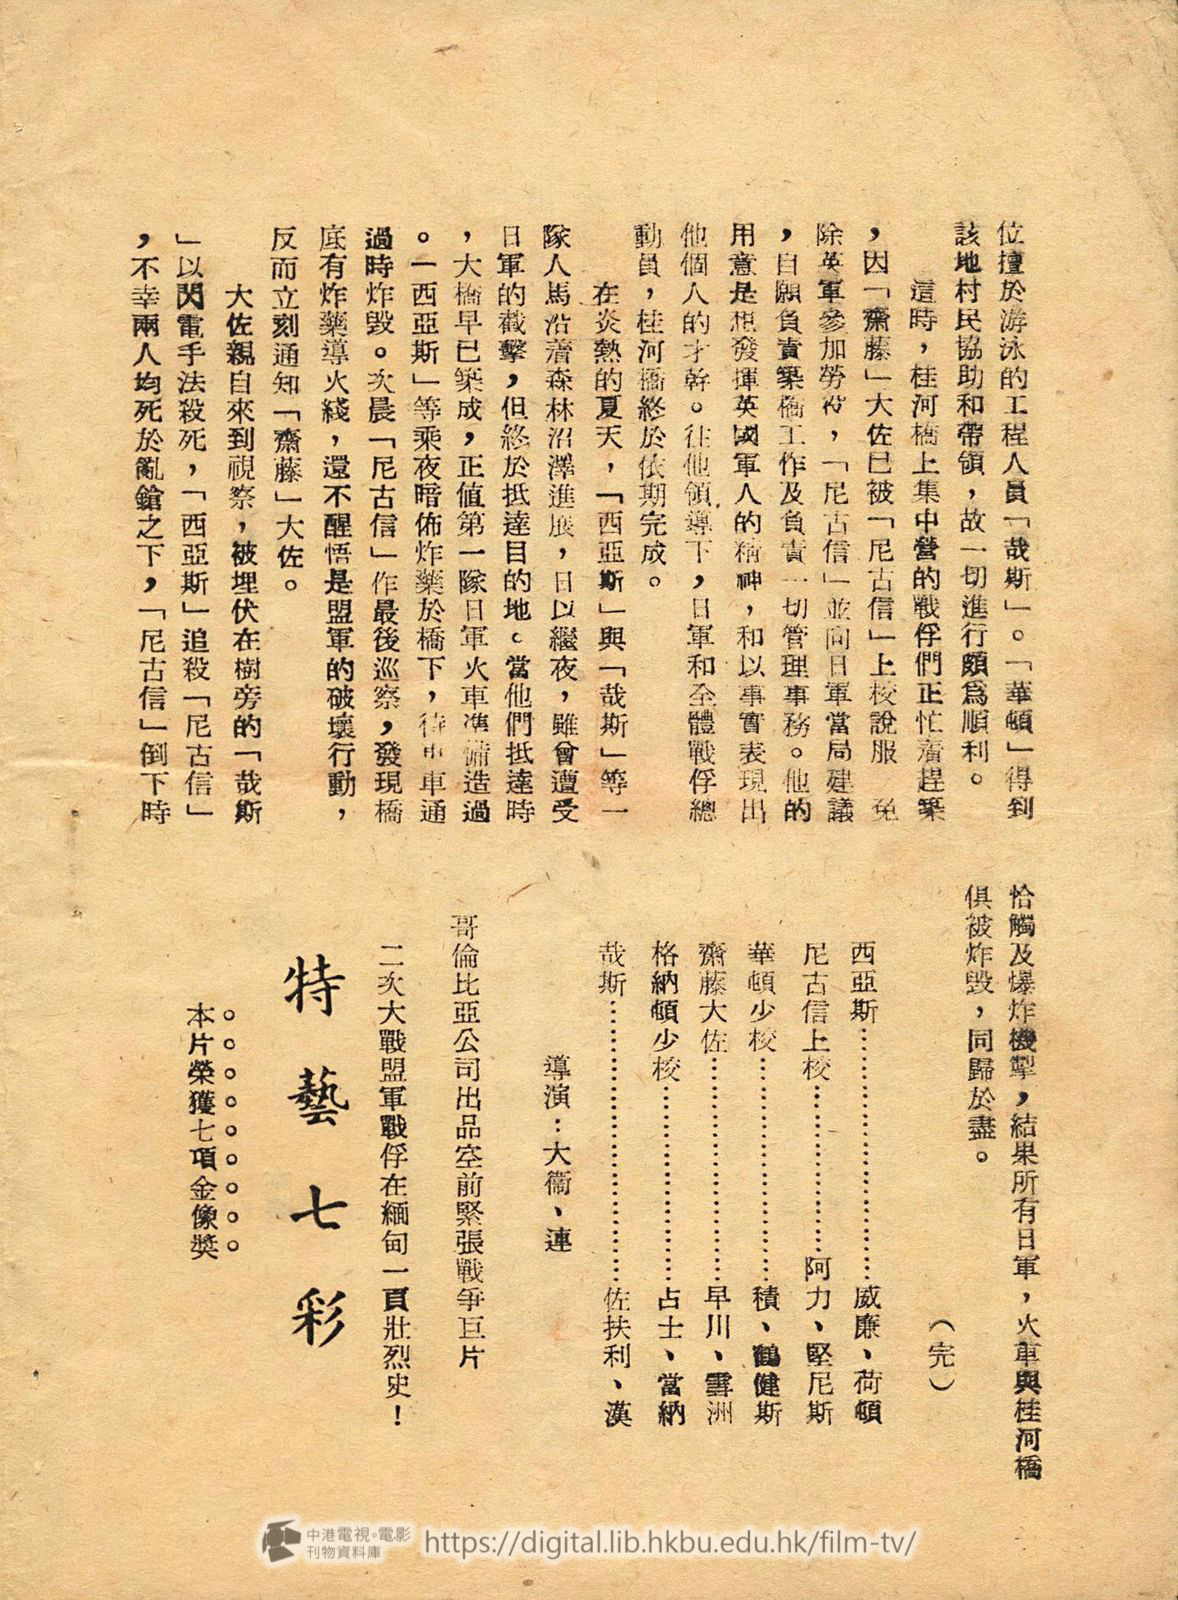 位擅於游泳的工程人員「哉斯」。「華頓」得到
該地村民協助和帶領，故一切進行頗爲順利。
這時，桂河橋上集中營的戰俘們正忙着趕築
，因「齋藤」大佐已被「尼古信」上校說服　免
除英軍參加勞役，「尼古信」並向日軍當局建議
，自願負責築橋工作及負責一切管理事務。他的
用意是想發揮英國軍人的精神，和以事實表現出
他個人的才幹。在他領導下，日軍和全體戰俘總
動員，桂河橋終於依期完成。
在炎熱的夏天，「西亞斯」與「哉斯」等一
隊人馬沿着森林沼澤進展，日以繼夜，雖曾遭受
日軍的截擊，但終於抵達目的地。當他們抵達時
，大橋早已築成，正值第一隊日軍火車準備造過
。「西亞斯」等乘夜暗佈炸藥於橋下，待火車通
過時炸毀。次晨「尼古信」作最後巡察，發現橋
底有炸藥導火綫，還不醒悟是盟軍的破壞行動，
反而立刻通知「齋藤」大佐。
大佐親自來到視察，被埋伏在樹旁的「哉斯
」以閃電手法殺死，「西亞斯」追殺「尼古信」
，不幸兩人均死於亂鎗之下，「尼古信」倒下時
恰觸及爆炸機掣，結果所有日軍，火車與桂河橋
俱被炸毀，同歸於盡。
（完）
西亞斯………………………威廉、荷頓
尼古信上校………………阿力、堅尼斯
華頓少校…………………積、鶴健斯
齋藤大佐…………………早川、雪洲
格納頓少校………………占士、當納
哉斯………………………佐扶利、漢
導演：大衞、連
哥倫比亞公司出品空前緊張戰爭巨片
二次大戰盟軍戰俘在緬甸一頁壯烈史！
特藝七彩
。。。。。。。。。
本片榮獲七項金像獎
中港電視·電影
刊物資料庫
https://digital.lib.hkbu.edu.hk/film-tv/